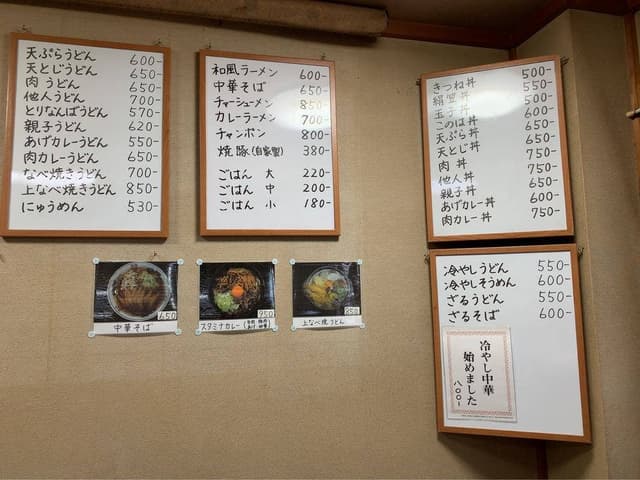 天ぷらうどん 600-
天とじうどん 650-
肉うどん 650-
他人うどん 700-
とりなんばうどん 570-
親子うどん 620-
あげカレーうどん 550-
肉カレーうどん 650-
なべ焼きうどん 700-
上なべ焼きうどん 850-
にゅうめん 530-
和風ラーメン 600-
中華そば 650-
チャーシューメン 850-
カレーラーメン 700-
チャンポン 800-
焼豚(自家製) 380-
ごはん 大 220-
ごはん 中 200-
ごはん 小 180-
きつね丼 500-
絹笠丼 550-
玉子丼 500-
このは丼 550-
天ぷら丼 650-
天とじ丼 650-
肉丼 750-
他人丼 750-
親子丼 650-
あげカレー丼 600-
肉カレー丼 750-
冷やしうどん 550-
冷やしそうめん 600-
ざるうどん 550-
ざるそば 600-
冷やし中華
始めました
八〇〇-
650
中華そば
950
スタミナカレー
850
上なべ焼うどん